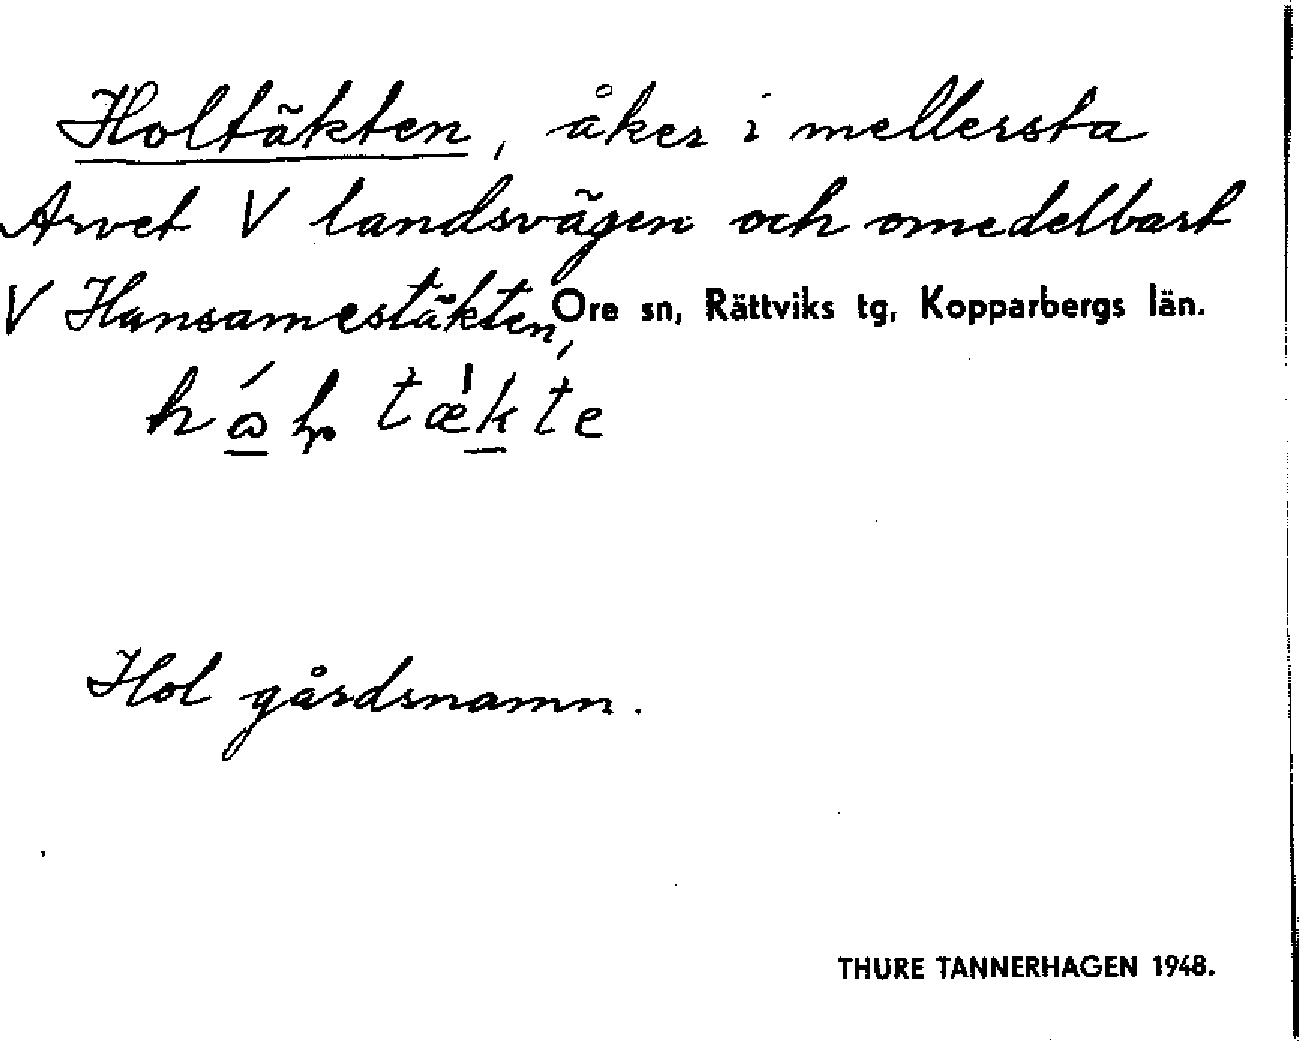 Holtäkten, åker i mellersta
Arvet V landsvägen och omedelbart
V Hansamestäkten, Ore sn, Rättviks tg, Kopparbergs län.
Hol gårdsnamn.
THURE TANNERHAGEN 1948.